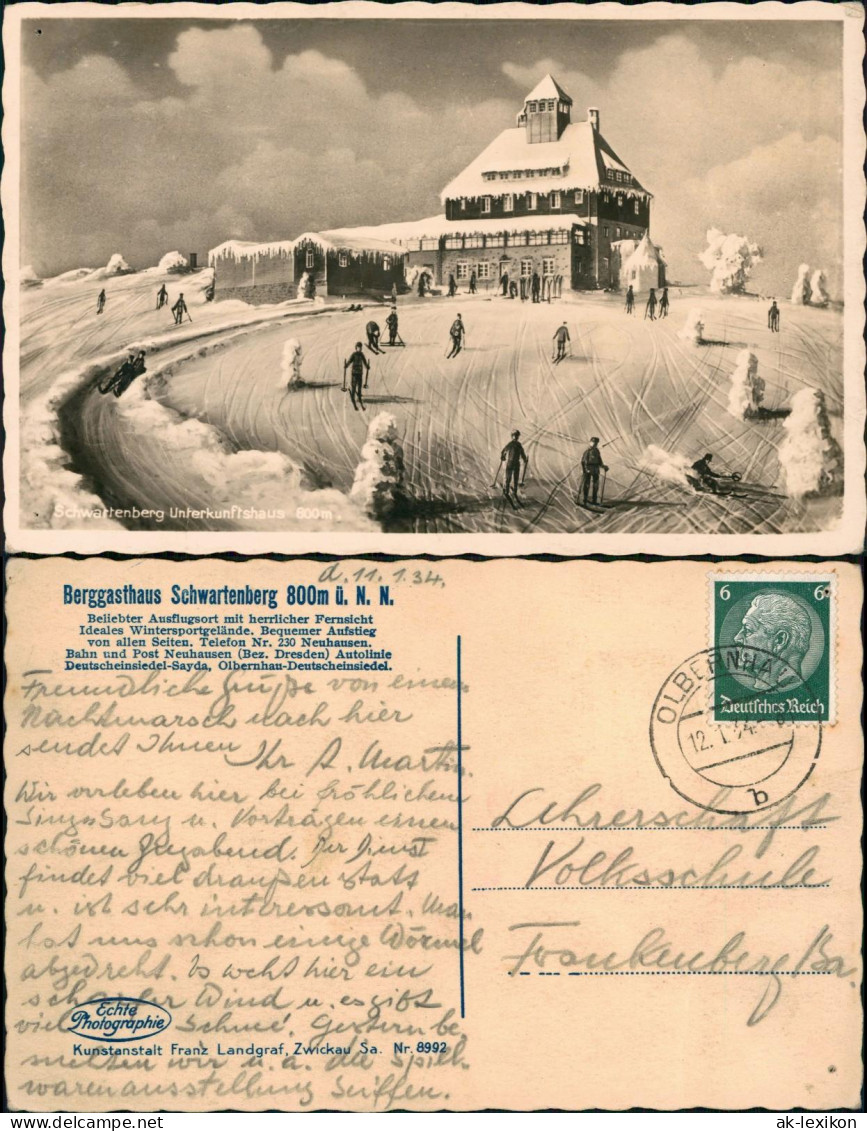 Schwartenberg Unterkunftshaus 800m.
d. 11. 1. 34.
Berggasthaus Schwartenberg 800m ü. N. N.
Beliebter Ausflugsort mit herrlicher Fernsicht
Ideales Wintersportgelände. Bequemer Aufstieg
von allen Seiten. Telefon Nr. 230 Neuhausen.
Bahn und Post Neuhausen (Bez. Dresden) Autolinie
Deutscheinsiedel-Sayda, Olbernhau-Deutscheinsiedel.
6 6
Deutsches Reich
OLBERNHAU
12. 1. 34
b
Freundliche Grüße von einem
Nachtmarsch nach hier
sendet Ihnen
Ihr A. Martin.
Wir verleben hier bei fröhlichem
Sing u. Sang u. Vorträgen einen
schönen Abend. Der Dienst
findet viel draußen statt
u. ist sehr interessant. Man
hat uns schon einige Würmel
abgedreht. Es weht hier ein
scharfer Wind u. es gibt
viel Schnee. Gestern be-
suchten wir u. a. die Spiel-
warenausstellung Seiffen.
Lehrerschaft
Volksschule
Frankenberg
Echte
Photographie
Kunstanstalt Franz Landgraf, Zwickau Sa. Nr. 8992
www.ansichtskarten-lexikon.de
ak-lexikon